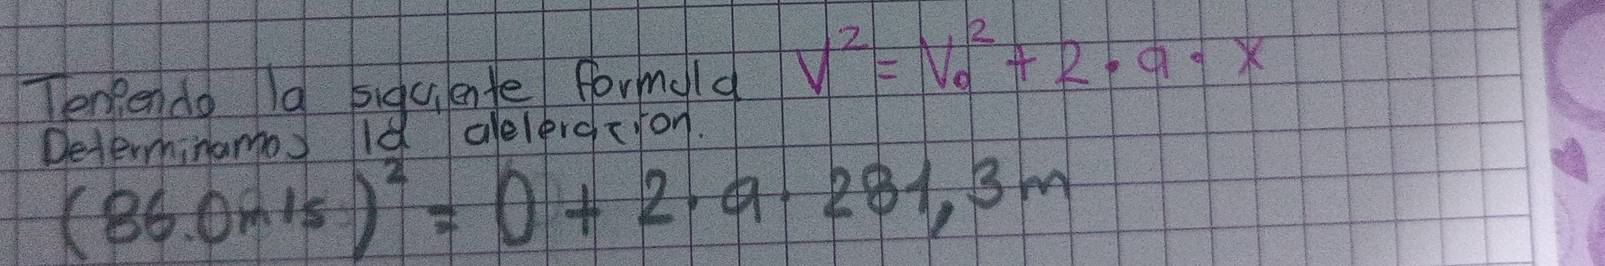 Teniendo la siguiente formula V² = V₀² + 2 · a · x
Determinamos la aleleracion.
(86.0m/s)² = 0 + 2 · a · 281,3m